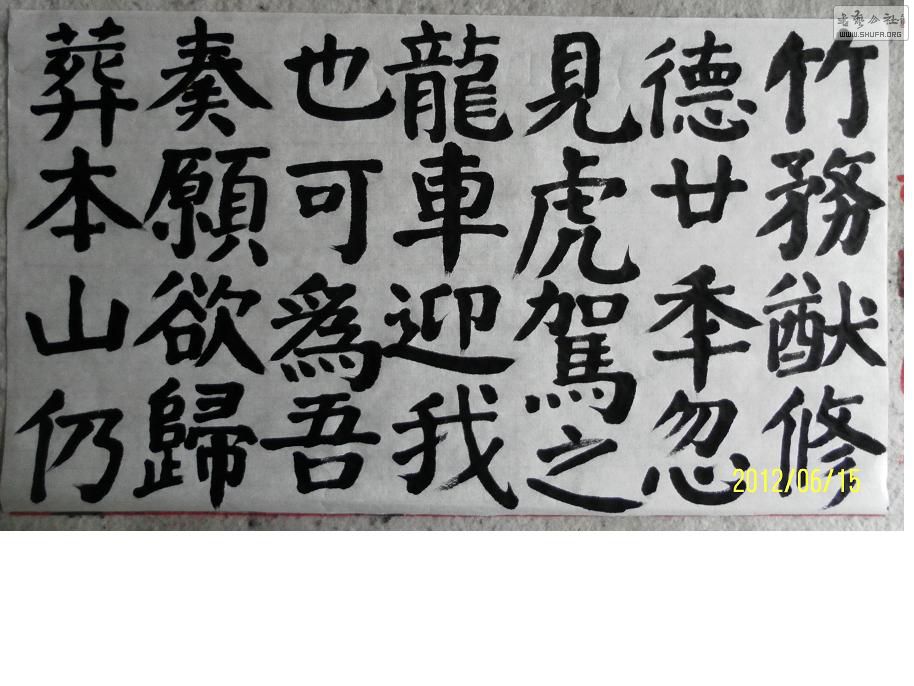 竹務猷修
德廿秊忽
見虎駕之
龍車迎我
也可爲吾
奏願欲歸
葬本山仍
2012/06/15
WWW.SHUFA.ORG